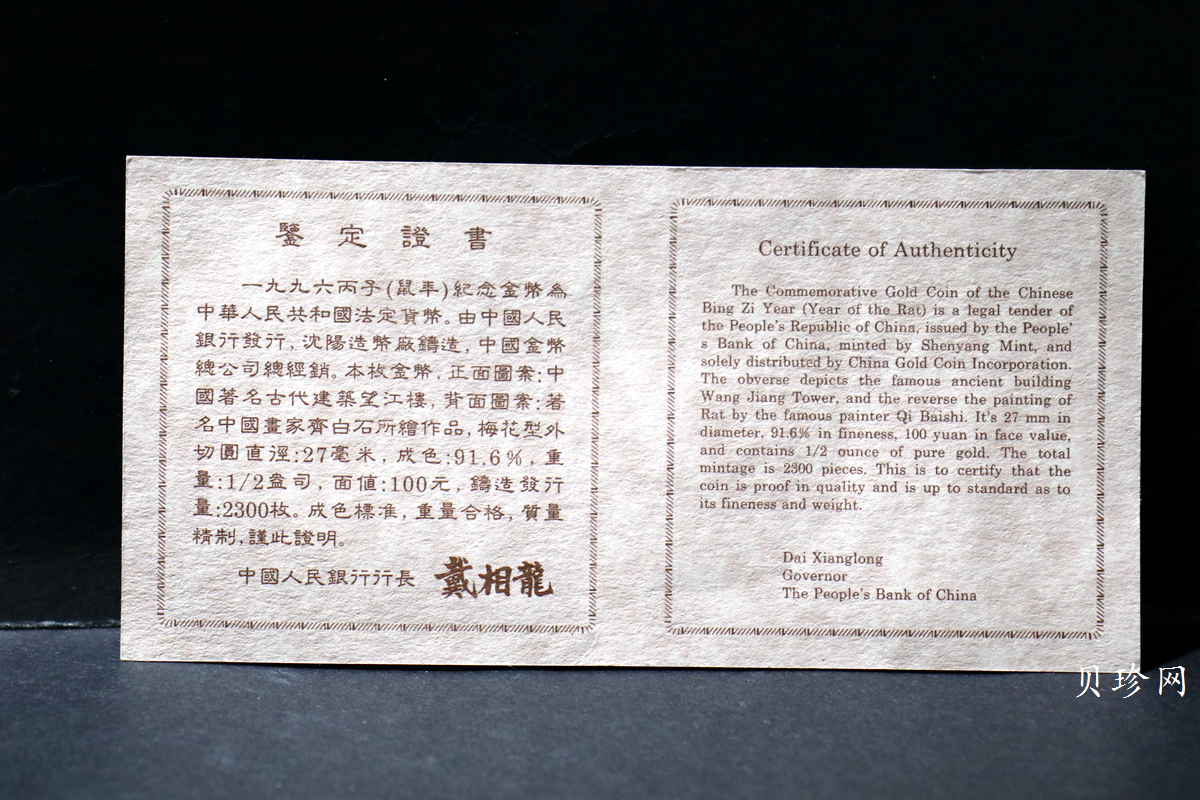 鑒定證書
一九九六丙子(鼠年)紀念金幣為
中華人民共和國法定貨幣。由中國人民
銀行發行,沈陽造幣廠鑄造,中國金幣
總公司總經銷。本枚金幣,正面圖案:中
國著名古代建築望江樓,背面圖案:著
名中國畫家齊白石所繪作品,梅花型外
切圓直徑:27毫米,成色:91.6%,重
量:1/2盎司,面值:100元,鑄造發行
量:2300枚。成色標准,重量合格,質量
精制,謹此證明。
中國人民銀行行長 戴相龍
Certificate of Authenticity
The Commemorative Gold Coin of the Chinese
Bing Zi Year (Year of the Rat) is a legal tender of
the People's Republic of China, issued by the People'
s Bank of China, minted by Shenyang Mint, and
solely distributed by China Gold Coin Incorporation.
The obverse depicts the famous ancient building
Wang Jiang Tower, and the reverse the painting of
Rat by the famous painter Qi Baishi. It's 27 mm in
diameter, 91.6% in fineness, 100 yuan in face value,
and contains 1/2 ounce of pure gold. The total
mintage is 2300 pieces. This is to certify that the
coin is proof in quality and is up to standard as to
its fineness and weight.
Dai Xianglong
Governor
The People's Bank of China
贝珍网